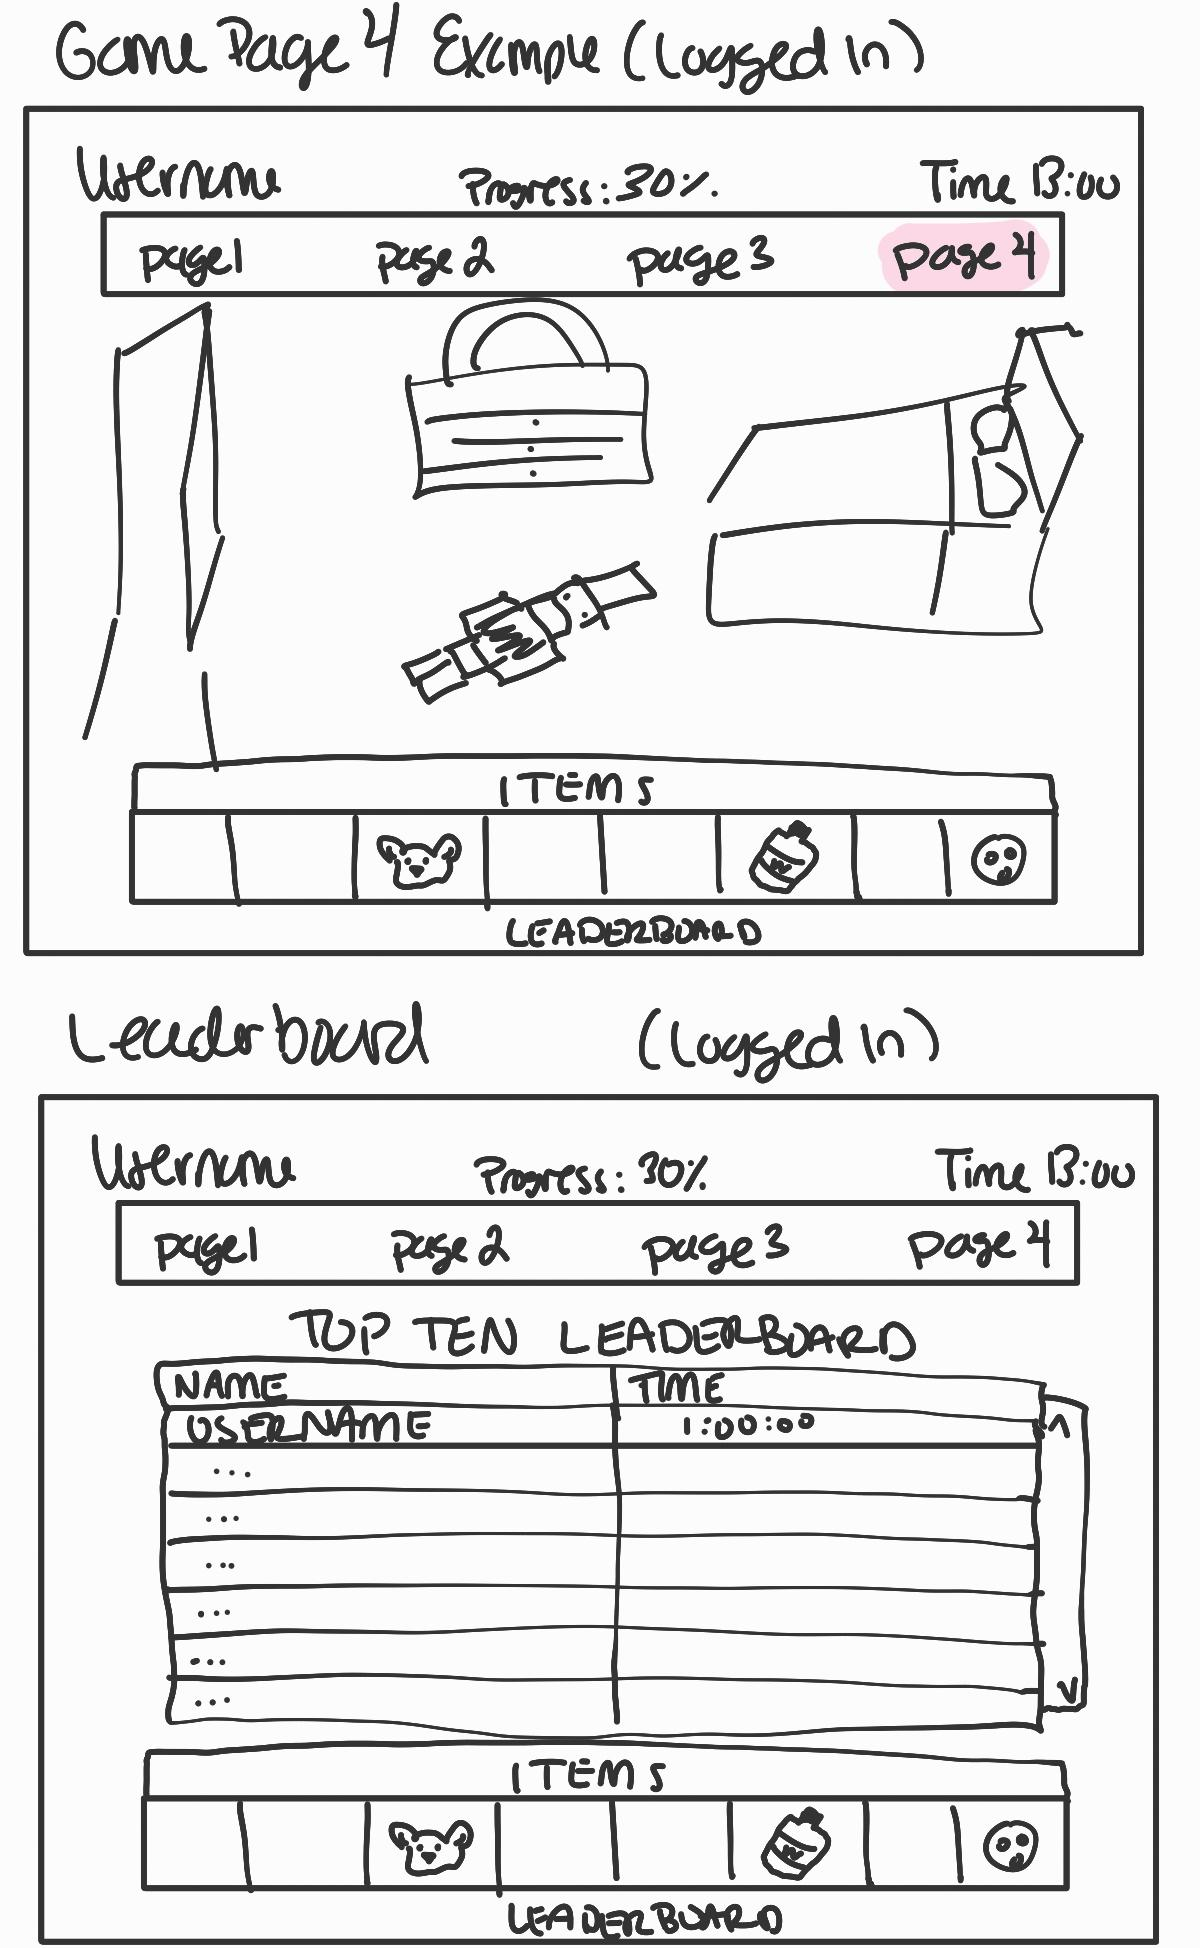 Game Page 4 Example (Logged In)
Username Progress: 30% Time 13:00
page 1 page 2 page 3 page 4
ITEMS
LEADERBOARD
Leaderboard (Logged In)
Username Progress: 30% Time 13:00
page 1 page 2 page 3 page 4
TOP TEN LEADERBOARD
NAME TIME
USERNAME 1:00:00
...
...
...
...
...
...
ITEMS
LEADERBOARD